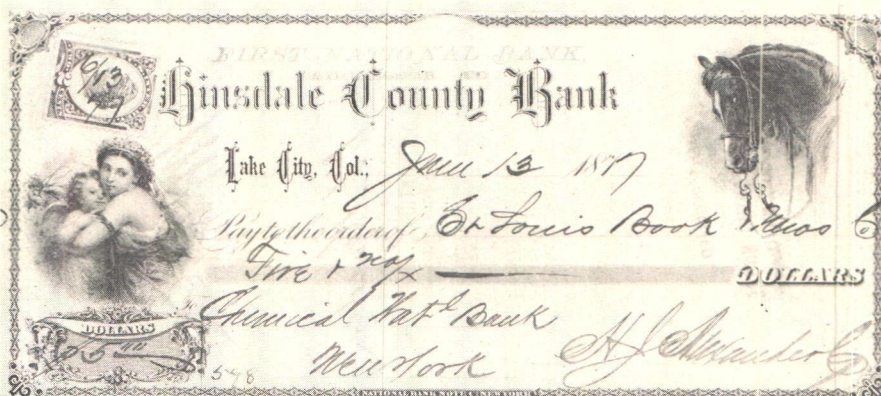 6/13
77
FIRST NATIONAL BANK
Hinsdale County Bank
Lake City, Col., June 13 1877
Pay to the order of St Louis Book & News Co
Five & no/x DOLLARS
Chemical Nat'l Bank
New York
DOLLARS
H J Alexander
578
NATIONAL BANK NOTE CO. NEW YORK